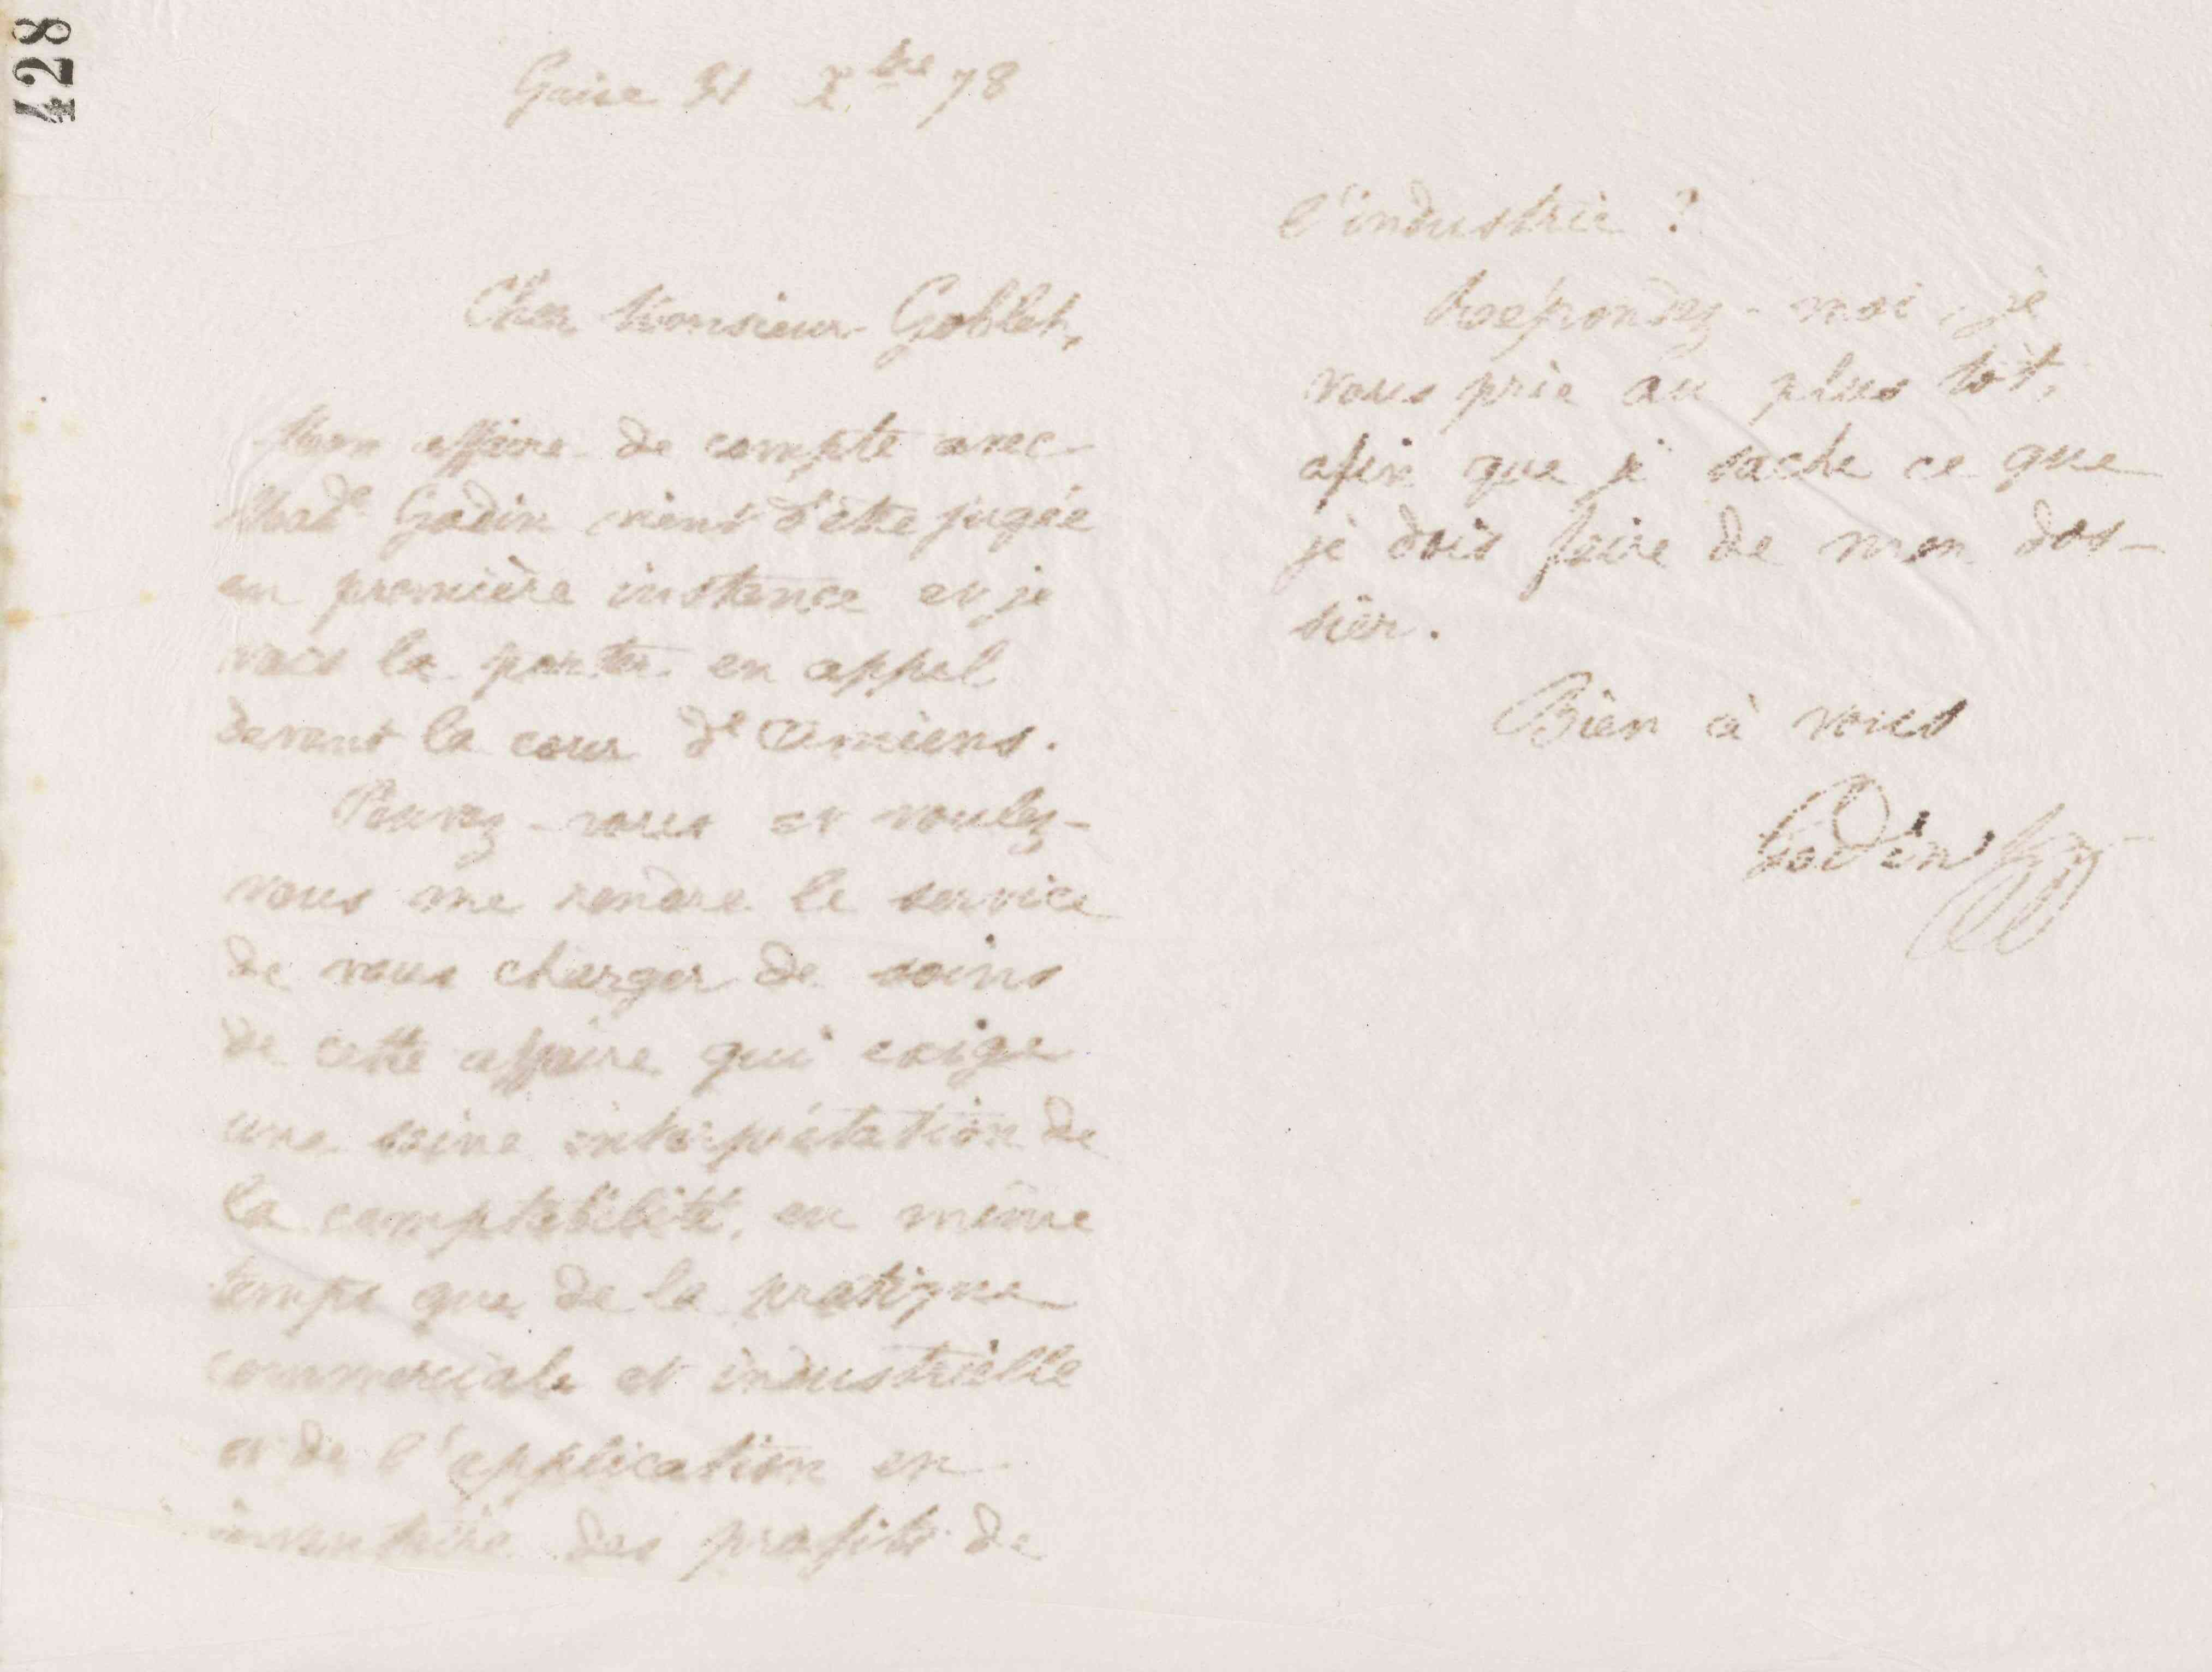 428
Guise 31 Xbre 78
Cher Monsieur Goblet,
Mon affaire de compte avec
Made Godin vient d'être jugée
en première instance et je
vais la porter en appel
devant la cour d'Amiens.
Pouvez-vous et voulez-
vous me rendre le service
de vous charger de soins
de cette affaire qui exige
une saine interprétation de
la comptabilité, en même
temps que de la pratique
commerciale et industrielle
et de l'application en
inventaire des profits de
l'industrie ?
Répondez-moi, je
vous prie au plus tôt,
afin que je sache ce que
je dois faire de mon dos-
sier.
Bien à vous
Godin